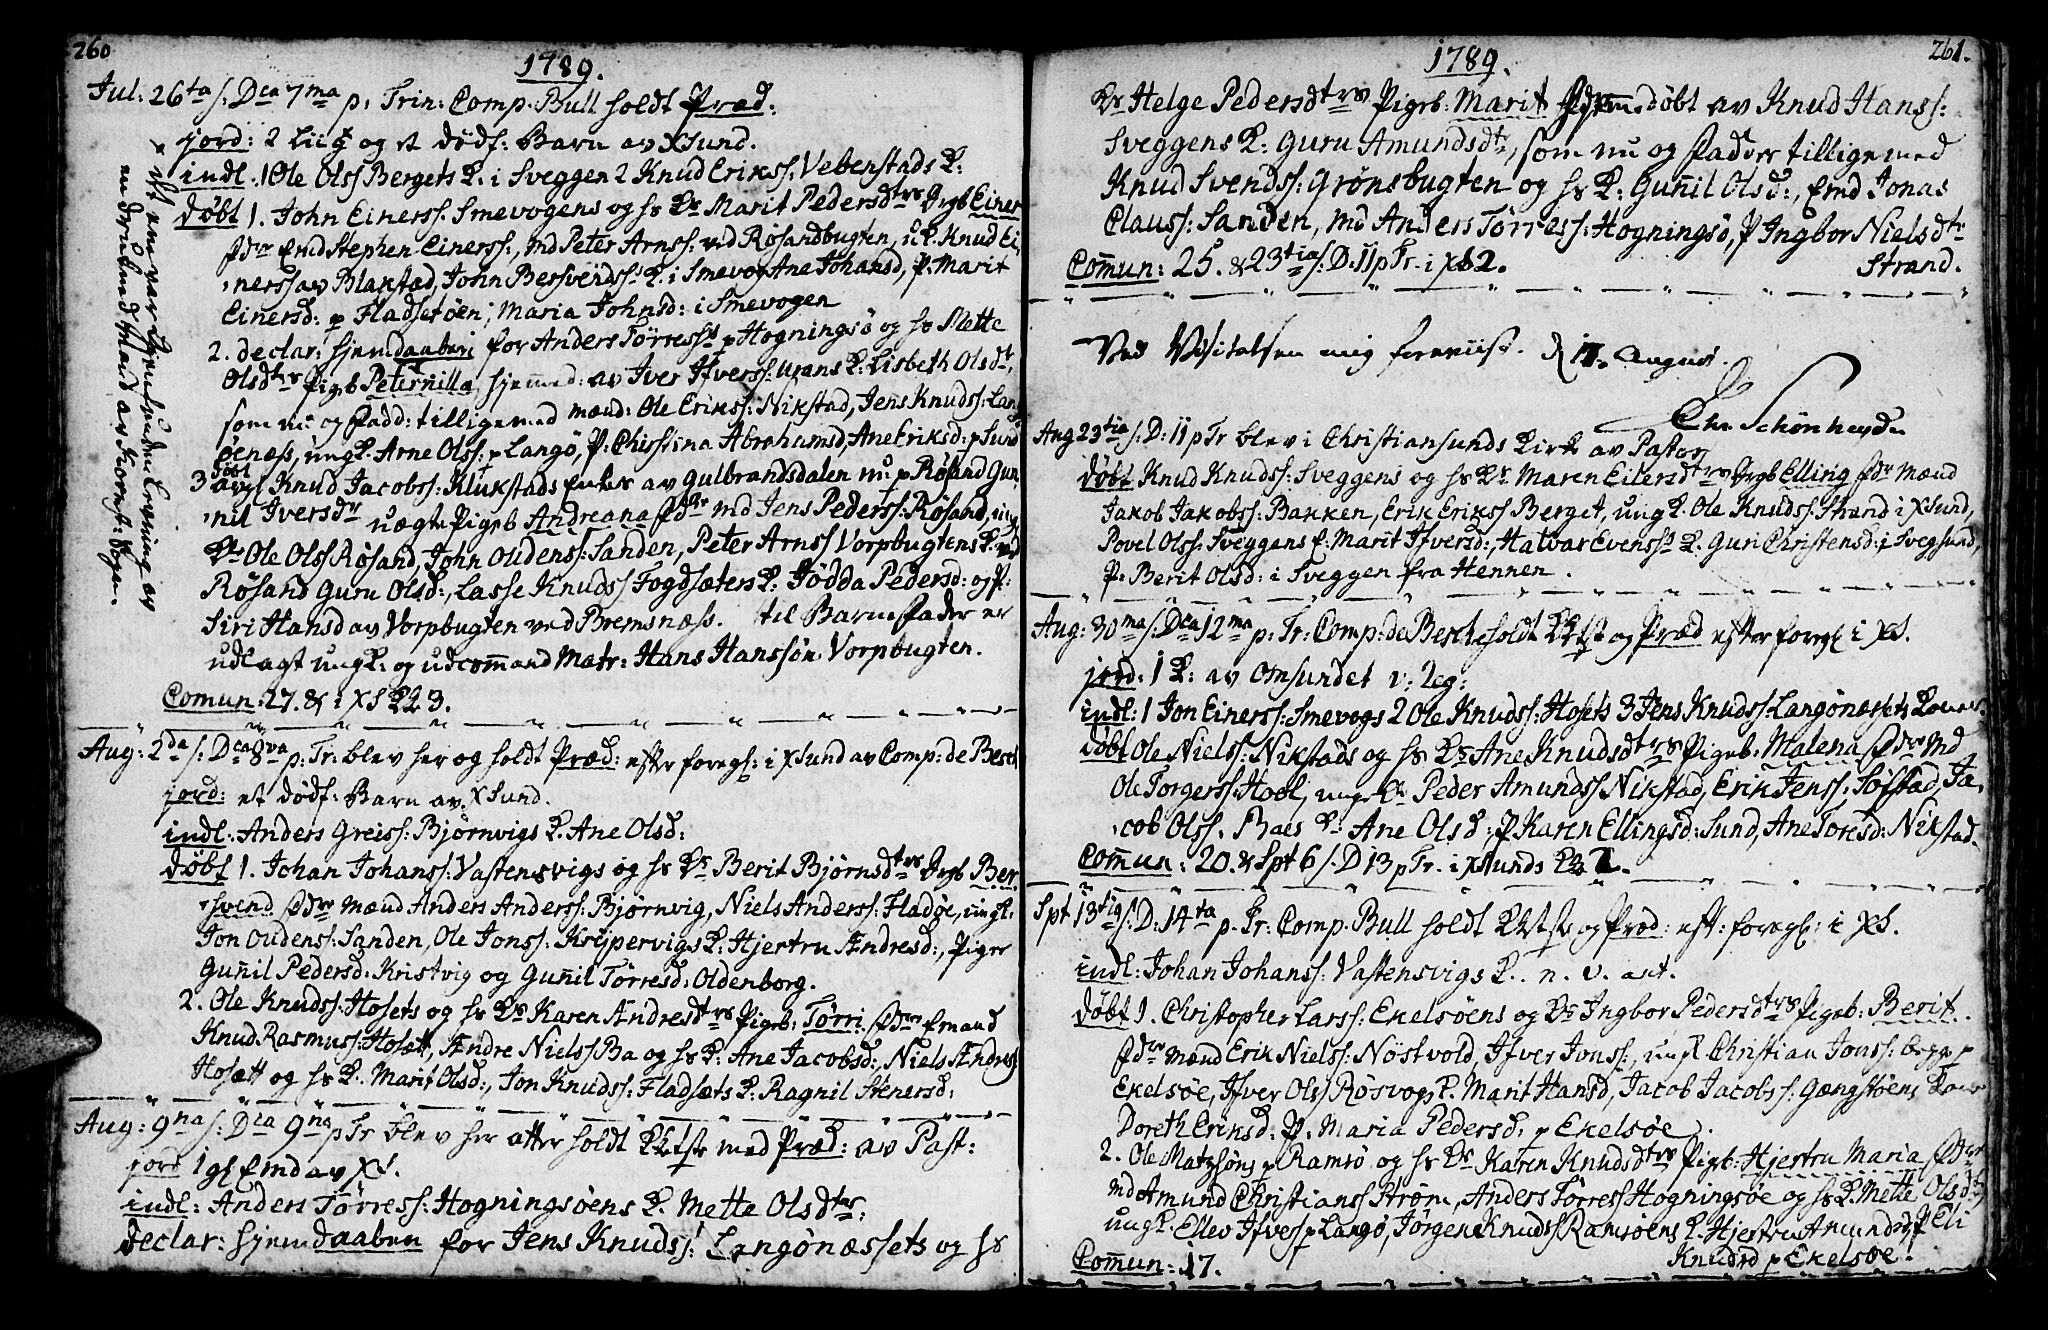 260
1789.
Jul: 26ta s: Dca 7ma p: Trin: Comp. Bull holdt Præd:
jord: 2 Liig og et dødf: Barn av XSund.
indl. 1 Ole Olss Bergets K: i Sveggen 2 Knud Erikss: Vebenstads K:
døbt 1. John Einerss: Smevogens og hs Ks Marit Pedersdtrs Drgb Einer
fdre Emd Stephen Einerss:, md Peter Arnss: ved Røsandbugten, u.K. Knud Ei-
nerss av Blakstad, John Bersvendss K. i Smevog Ane Johansd, P. Marit
Einersd: p Fladsetøen; Maria Johnsd: i Smevogen
2. declar: hjemdaaben for Anders Tørress: p Hogningsø og hs Mette
Olsdtrs Pigeb Peternilla hjemmed: av Iver Ifverss: Urans K: Lisbeth Olsdtr,
som nu og fadd: tilligemed mænd: Ole Erikss: Nikstad, Jens Knudss: Lang
øenæss, ungK. Arne Olss: p Langø, P: Chisstina Abrahamsd, Ane Eriksd: p Sund
3 døbt avg Knud Jacobss: Klukstads Enke av Gulbrandsdalen nu p Røsand Gun
nil Iversdtr uægte Pigeb Andreana fdre md Jens Pederss: Røsand, ung
K Ole Olss Røsand, John Oudenss: Sanden, Peter Arnss Vorpbugtens K. ved
Røsand Guru Olsd:, Lasse Knudss Fogdsæters K: Jødda Pedersd: og P:
Siri Hansd av Vorpbugten ved Bremsnæss. til Barnefader er
udlagt ungK: og udcommand Matr: Hans Hanssøn Vorpbugten.
Comun: 27. & i XS 223.
Aug: 2da s: Dca 8va p: Tr: blev her og holdt Præd: efter foregl: i XSund av Comp: de Besche
jord: et dødf: Barn av XSund.
indl: Anders Greiss: Bjørnvigs K. Ane Olsd:
døbt 1. Johan Johanss: Vastensvigs og hs Ks Berit Bjørnsdtrs Drgb Ber
svend fdre mænd Anders Anderss: Bjørnvig, Niels Anderss: Fladøe, ungk:
Jon Oudenss: Sanden, Ole Jonss: Krypervigs K: Hjertru Andresd:, Piger
Gunnil Pedersd: Kristvig og Gunnil Tørresd: Oldenborg.
2. Ole Knudss: Hosets og hs Ks Karen Andresdtrs Pigeb: Tørri fdre Emand
Knud Rasmuss: Hosætt, Andre Nielss Ba og hs K: Ane Jacobsd:, Niels Andress
Hosætt og hs K. Marit Olsd:, Jon Knudss: Fladsæts K: Ragnil Stenersd:
Aug: 9na s: Dca 9na p Tr blev her atter holdt KTste med Præd: av Past:
jord 1 gl Emd av XS.
indl: Anders Tørress: Hogningsøens K. Mette Olsdtr:
declar: hjemdaaben for Jens Knudss: Langønæssets og hs
261.
1789.
Ks Helge Pedersdtrs Pigeb: Marit hjemdøbt av Knud Hanss:
Sveggens K: Guru Amundsdtr, som nu og fadder tilligemed
Knud Svendss: Grønsbugten og hs K: Gunnil Olsd:, Emd Jonas
Clauss: Sanden, md Anders Tørress: Hogningsø, P Ingbor Nielsdtr
Strand.
Comun: 25. & 23tia s: D: 11 p Tr. i XS 62.
Ved Visitatsen mig foreviist. d 17. August.
Chr. Schønheyder
Aug 23tia s: D: 11 p Tr blev i Christiansunds Kirke av Pastor
døbt Knud Knudss: Sveggens og hs Ks Maren Eilersdtrs Drgb Elling fdre mænd
Jakob Jakobss: Bakken, Erik Erikss Berget, ungK. Ole Knudss: Strand i XSund,
Povel Olss: Sveggens K: Marit Ifversd:, Halvar Evenss K. Guri Christensd: i Svegsund,
P: Berit Olsd: i Sveggen fra Hennen.
Aug: 30ma s: Dca 12ma p: Tr: Comp: de Besche holdt KTste og Præd efter foregl i XS.
jord: 1 K: av Omsundet v: Leg:
indl: 1 Jon Einerss: Smevogs 2 Ole Knudss: Hosets 3 Jens Knudss Langønæssets Koner.
døbt Ole Nielss: Nikstads og hs Ks Ane Knudsdtrs Pigeb: Malena fdre md
Ole Torgerss: Hool, unge K Peder Amundss Nikstad, Erik Jenss: Sofstad, Ja-
cob Olss. Baes K: Ane Olsd: P Karen Ellingsd: Sund, Ane Toresd: Nikstad.
Comun: 20. & Spt 6 s: D 13 p Tr. i XSunds
Spt 13tia s: D: 14ta p. Tr: Comp: Bull holdt KTste og Præd: eft: foregl: i XS.
indl: Johan Johanss: Vastensvigs K. n. v. ant.
døbt 1. Christopher Larss: Ekelsøens og Ks Ingbor Pedersdtrs Pigeb: Berit.
fdre mænd Erik Nielss: Nøstvold, Ifver Jonss:, ungK Christian Jonss: begge p
Ekelsøe, Ifver Olss Røsvogs K. Marit Hansd, Jacob Jacobss: Gængstøens Kone
Doreth Eriksd: P. Maria Pedersd: p Ekelsøe.
2. Ole Matzsøns p Ramsø og hs Ks Karen Knudsdtrs Pigeb: Hjertru Maria fdre
md Amund Christianss Strøm, Anders Tørress Hogningsøe og hs K. Mette Olsdtr,
ungK. Ellev Ifvers p Langø, Jørgen Knudss Ramsøens K. Hjertru Amundsd, P Eli
Knudsd p Ekelsøe.
Comun: 17.